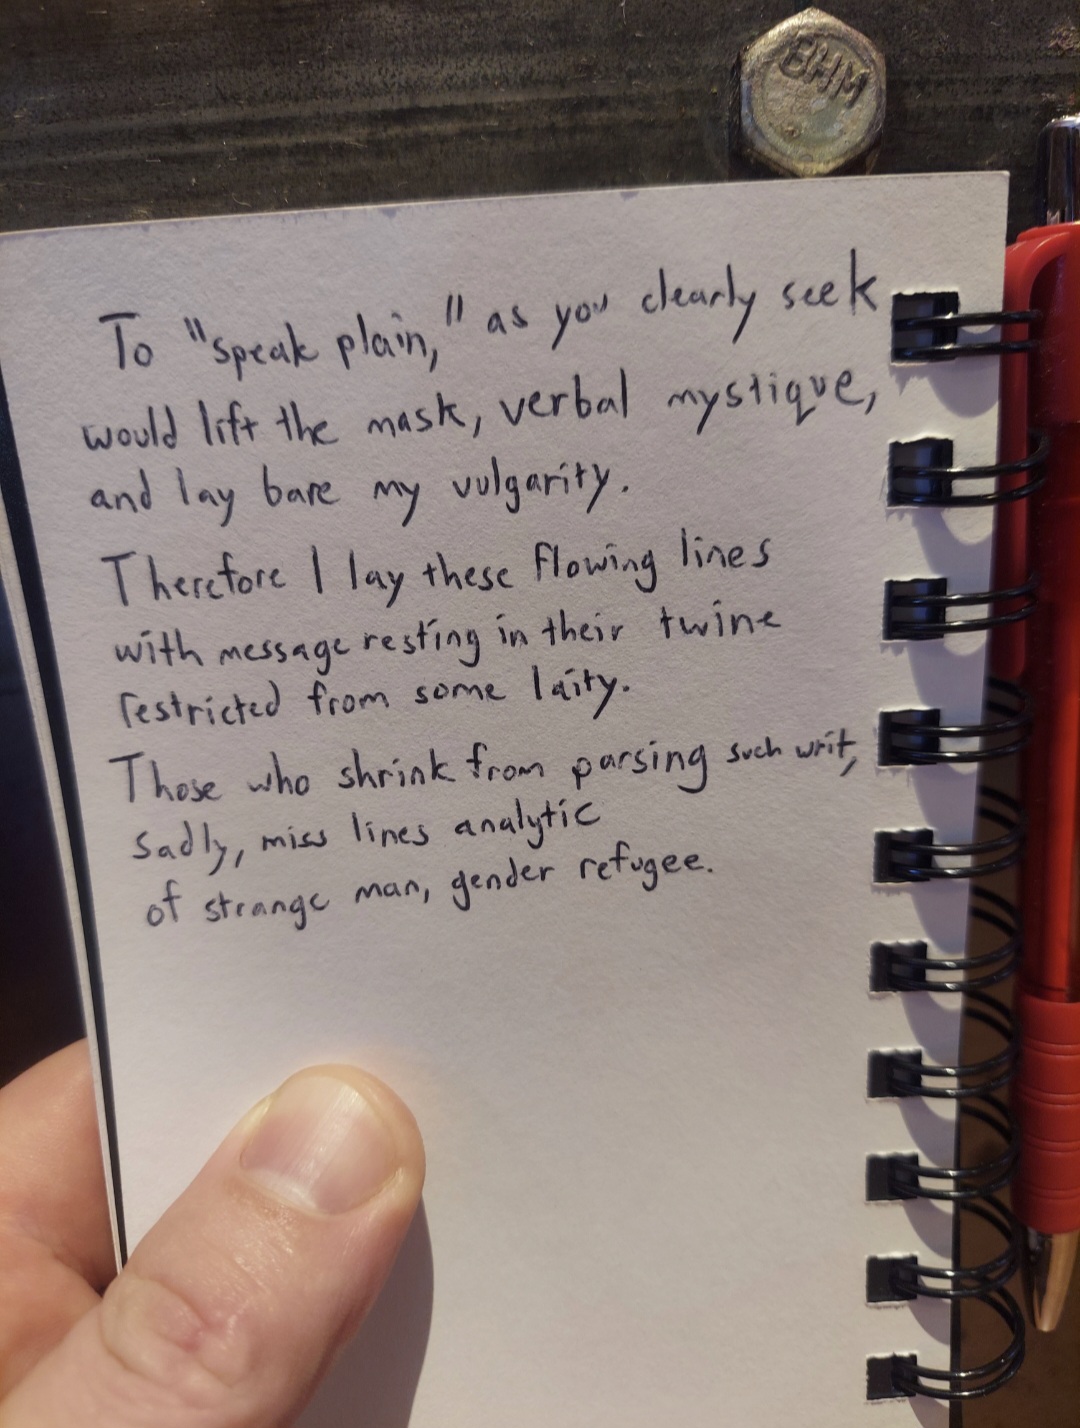 BHM
To "speak plain," as you clearly seek
would lift the mask, verbal mystique,
and lay bare my vulgarity.
Therefore I lay these flowing lines
with message resting in their twine
restricted from some laity.
Those who shrink from parsing such writ,
sadly, miss lines analytic
of strange man, gender refugee.